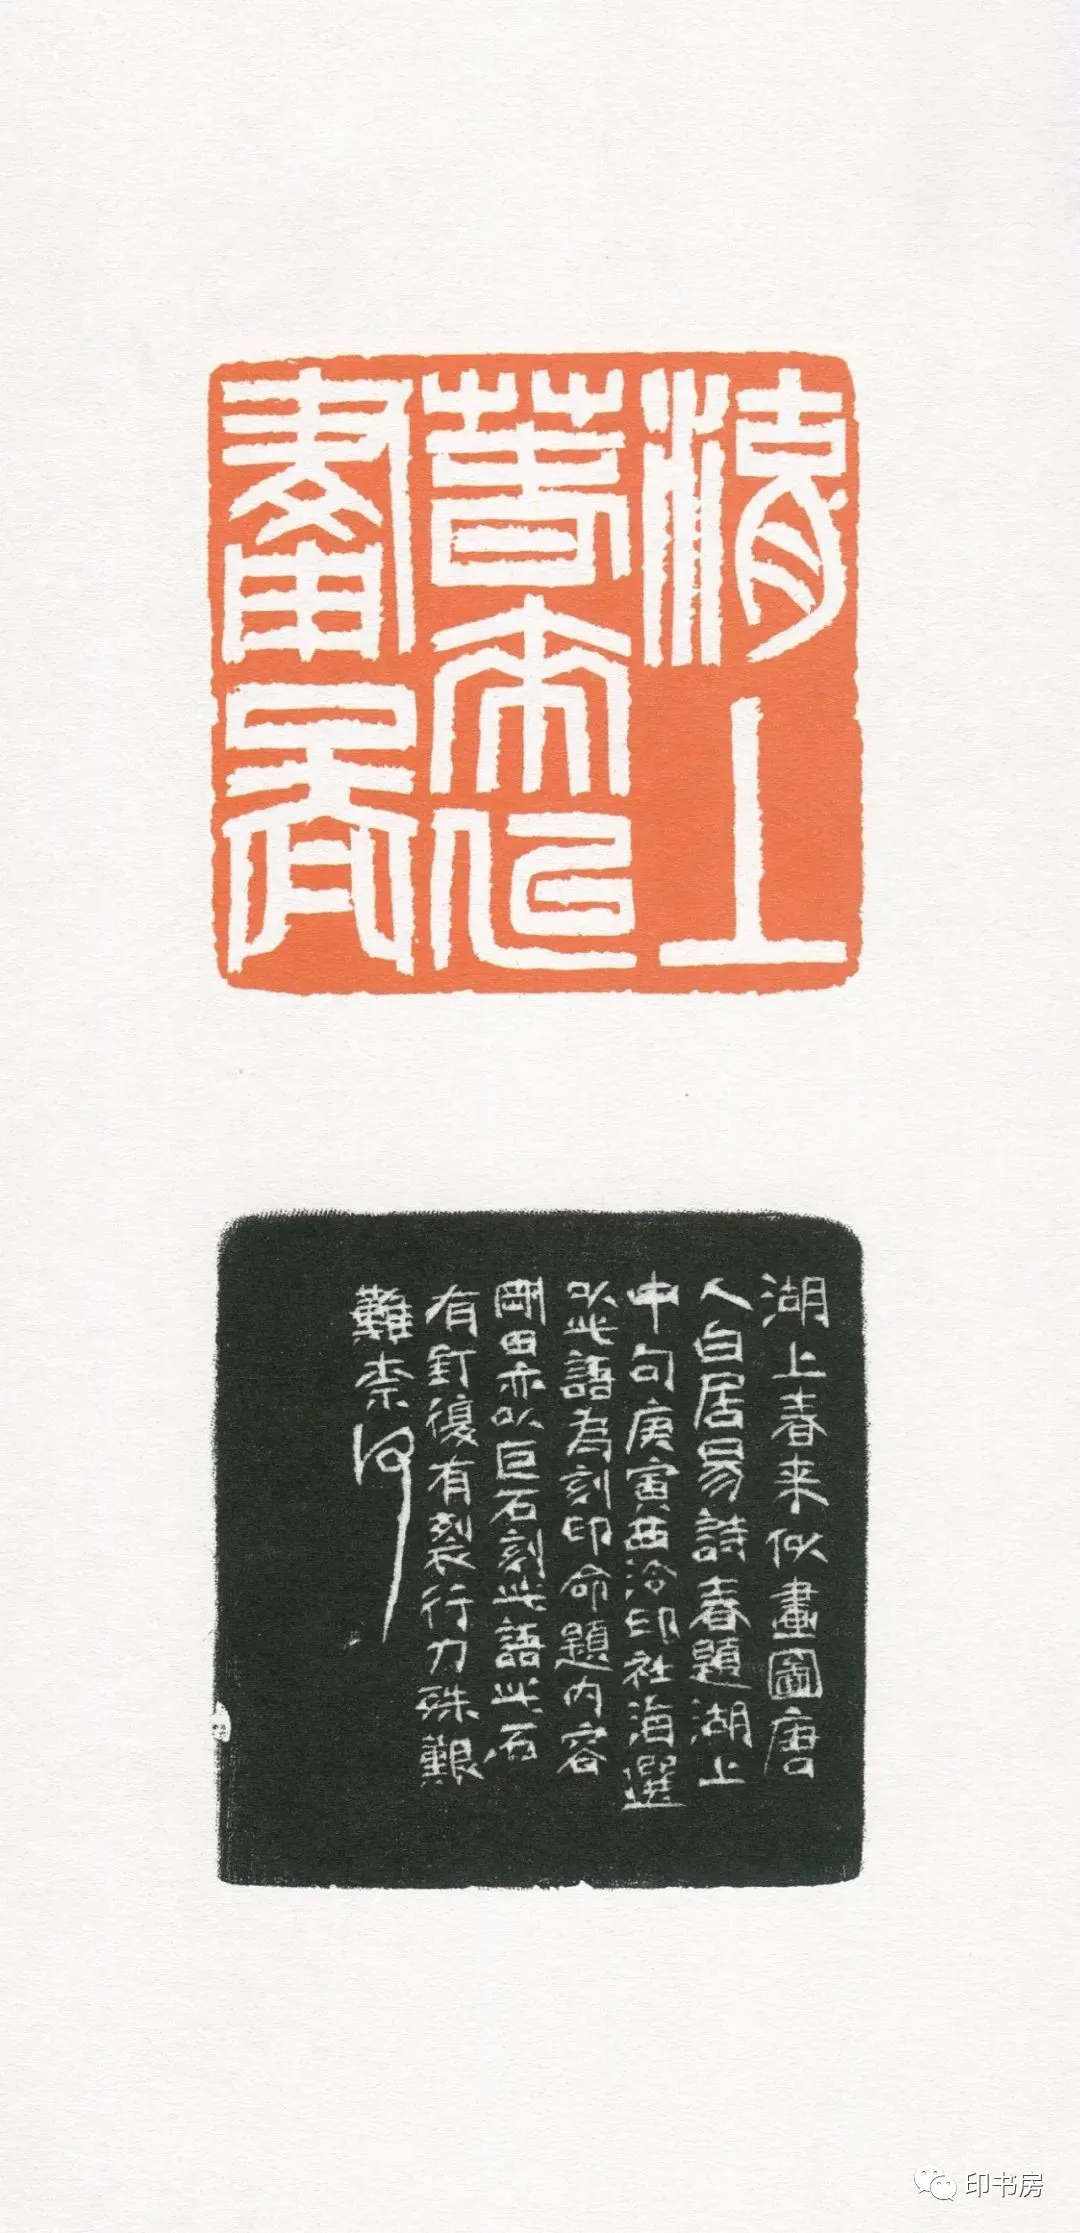 湖上
春來似
畫圖
湖上春来似畫圖唐
人白居易詩春題湖上
中句庚寅西泠印社海選
以此語為刻印命題内容
剛田亦以巨石刻此語此石
有釘復有裂行刀殊艱
難柰何
印书房